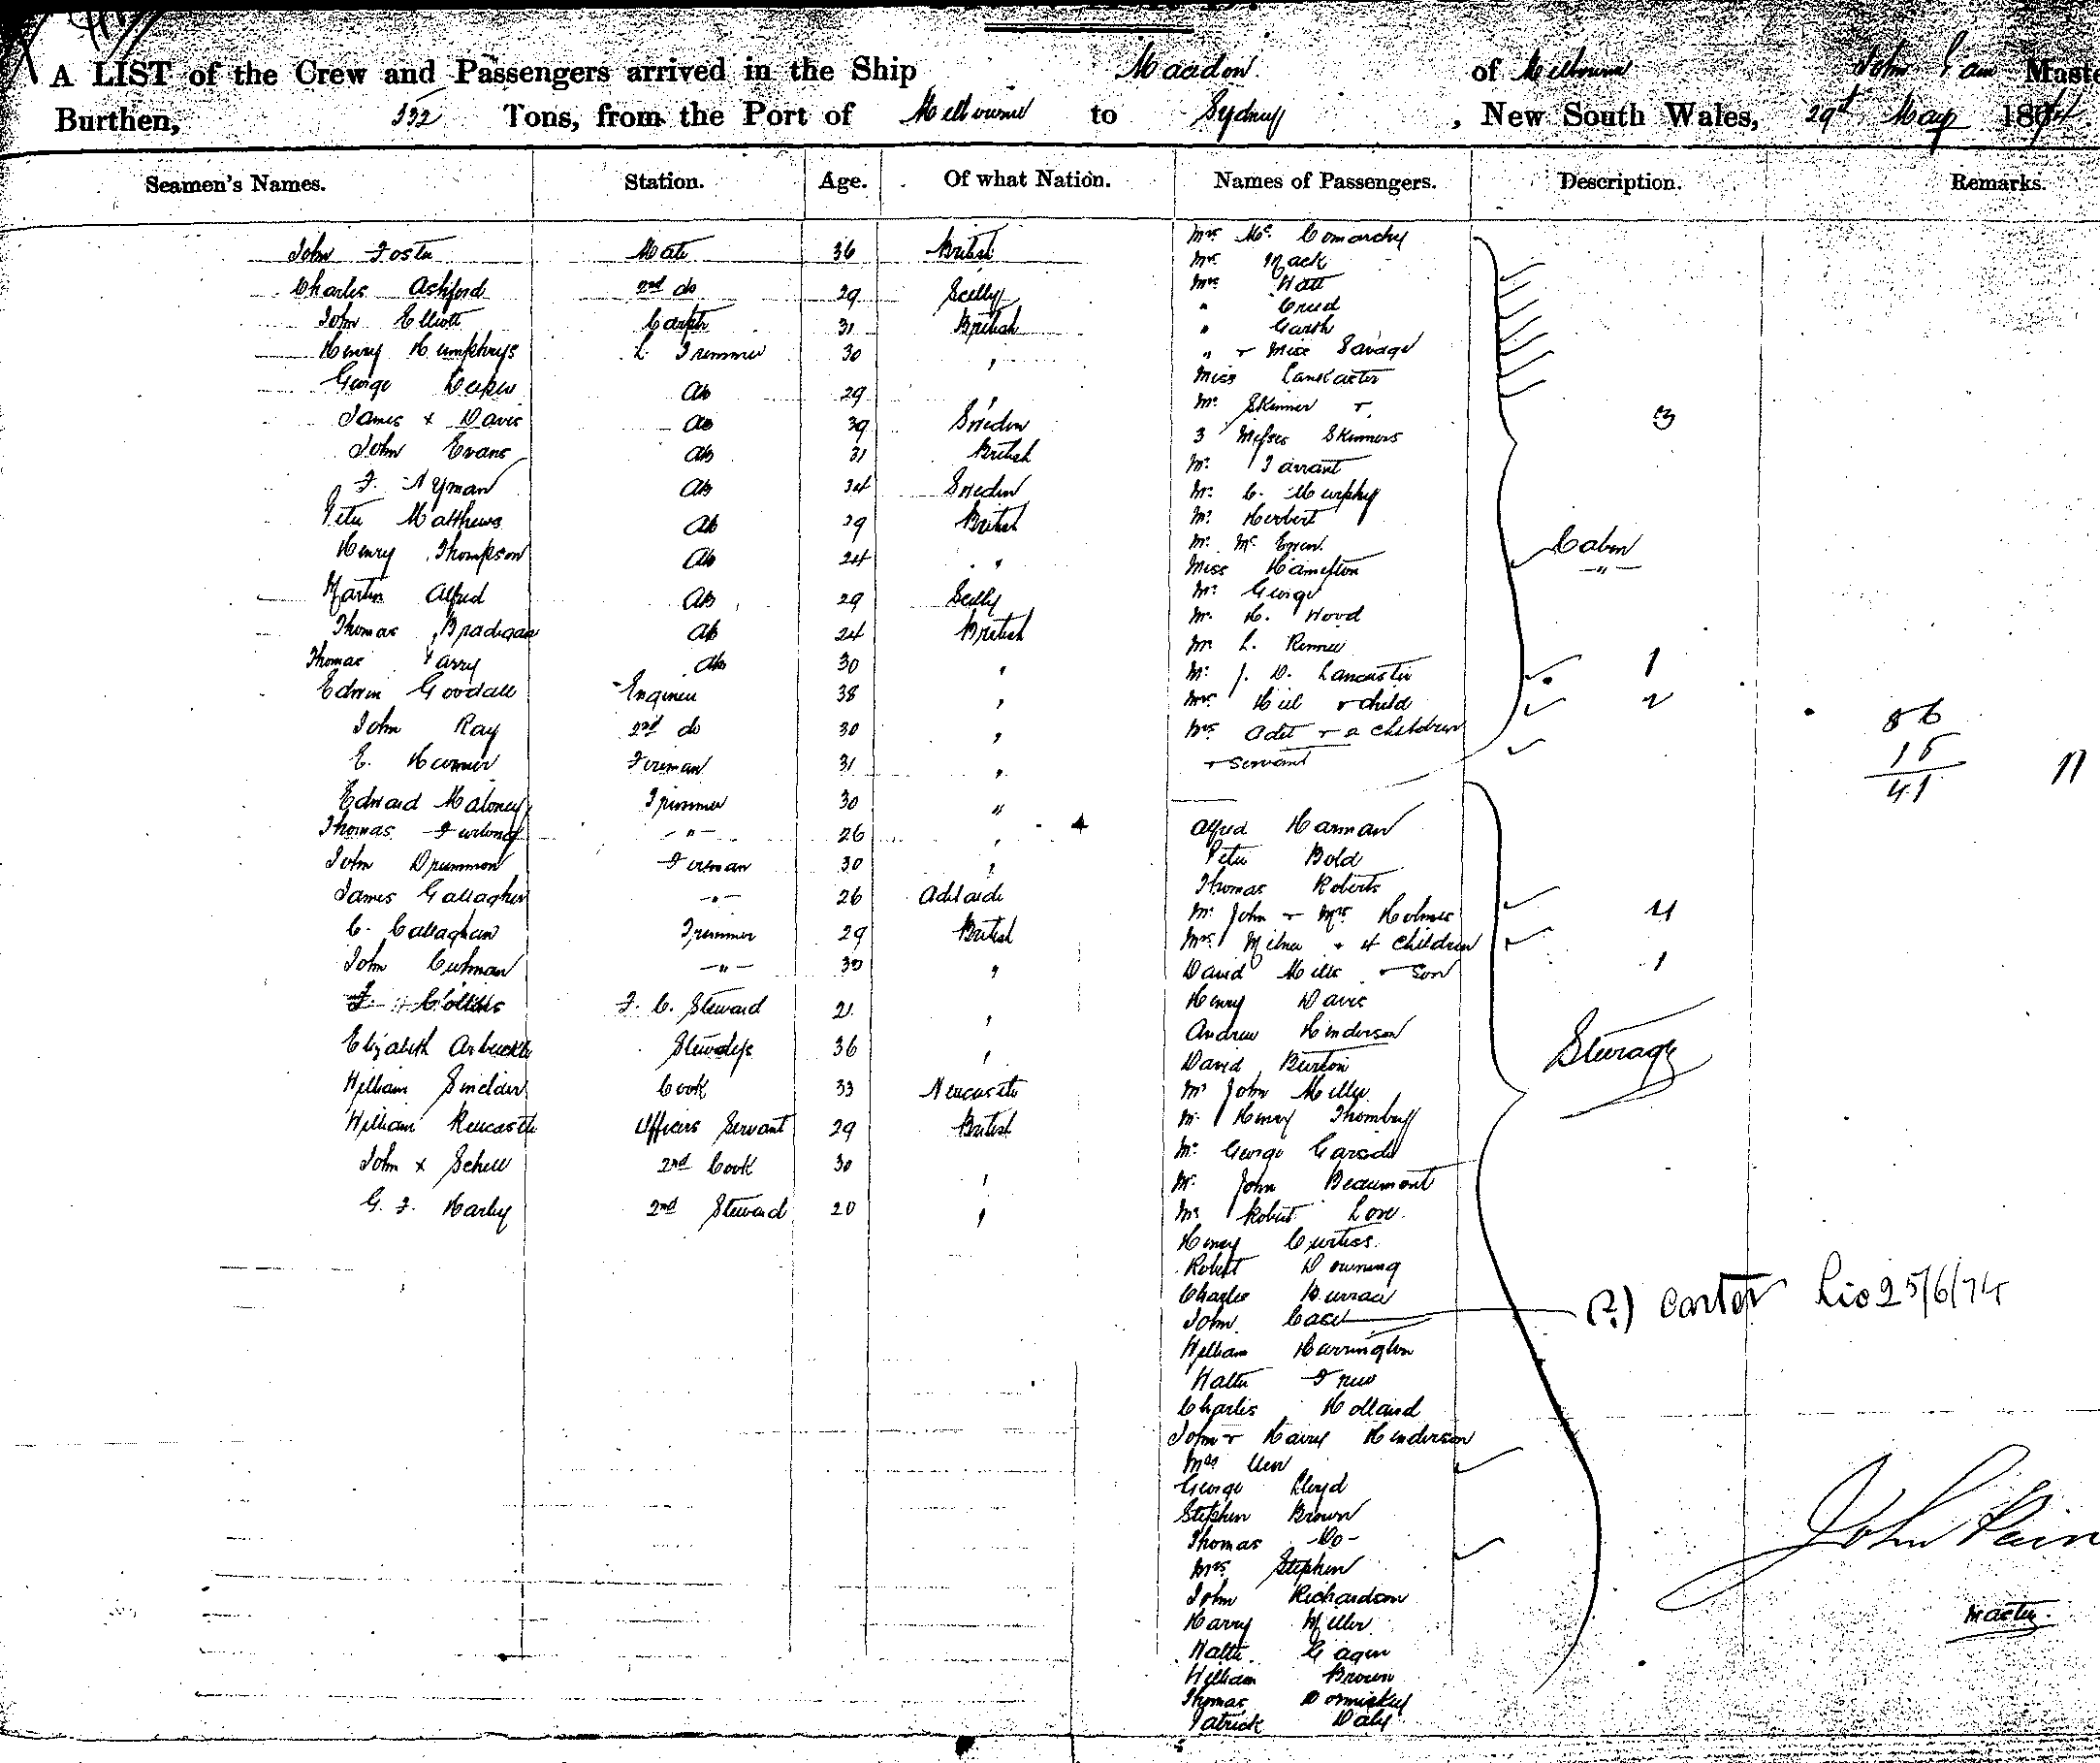 A LIST of the Crew and Passengers arrived in the Ship Macedon of Melbourne John Pain Maste
Burthen, 532 Tons, from the Port of Melbourne to Sydney, New South Wales, 29th May 1874.
Seamen's Names. Station. Age. Of what Nation. Names of Passengers. Description. Remarks.
John Foster Mate 36 British
Charles Ashford 2nd do 29 Scilly
John Elliott Carptr 31 British
Henry Humphrys L. Trimmer 30 "
George AB 29 "
James x Davis AB 39 Sweden
John Evans AB 31 British
F. Nyman AB 34 Sweden
Peter Matthews AB 29 British
Henry Thompson AB 24 "
Martin Alfred AB 29 Scilly
Thomas Bradigan AB 24 British
Thomas Parry AB 30 "
Edwin Goodall Engineer 38 "
John Ray 2nd do 30 "
E. Fireman 31 "
Edward Maloney Trimmer 30 "
Thomas Furlong -"- 26 "
John Drummon Fireman 30 "
James Gallagher -"- 26 Adelaide
C. Callaghan Trimmer 29 British
John -"- 30 "
F. Collins F. C. Steward 21 "
Elizabeth Arbuckle Stewardess 36 "
William Sinclair Cook 33 Newcastle
William Officers Servant 29 British
John x 2nd Cook 30 "
G. F. Harley 2nd Steward 20 "
Mrs Mc
Mrs Mack
Mrs Watt
" Creed
" Garth
" + Miss Savage
Miss Lancaster
Mr Skinner +
3 Misses Skinners 3
Mr Tarrant
Mr C. Murphy
Mr Herbert
Mr Mc Ewen Cabin
Miss Hamilton -"-
Mr George
Mr H. Wood
Mr L. Rennie
Mr J. D. Lancaster 1
Mrs Hill + child 2
Mrs Adet + 2 children
+ servant
86
15
41
11
Alfred Harman
Peter Bold
Thomas Roberts
Mr John + Mrs Holmes 4
Mrs Milne + 4 children
David Mills + son 1
Henry Davis
Andrew Henderson
David Burton Steerage
Mr John Miller
Mr Henry
Mr George Garside
Mr John Beaumont
Mr Robert Love
Henry Curtiss
Robert Downing
Charles
John Case (?) Carter Lio 25/6/74
William Harrington
Walter Frew
Charles Holland
John + Harry Henderson
Mrs
George Lloyd
Stephen Brown
Thomas Do-
Mrs Stephen
John Richardson
Harry Miller
Walter Gagen
William Brown
Thomas
Patrick Daly
John Pain
Master